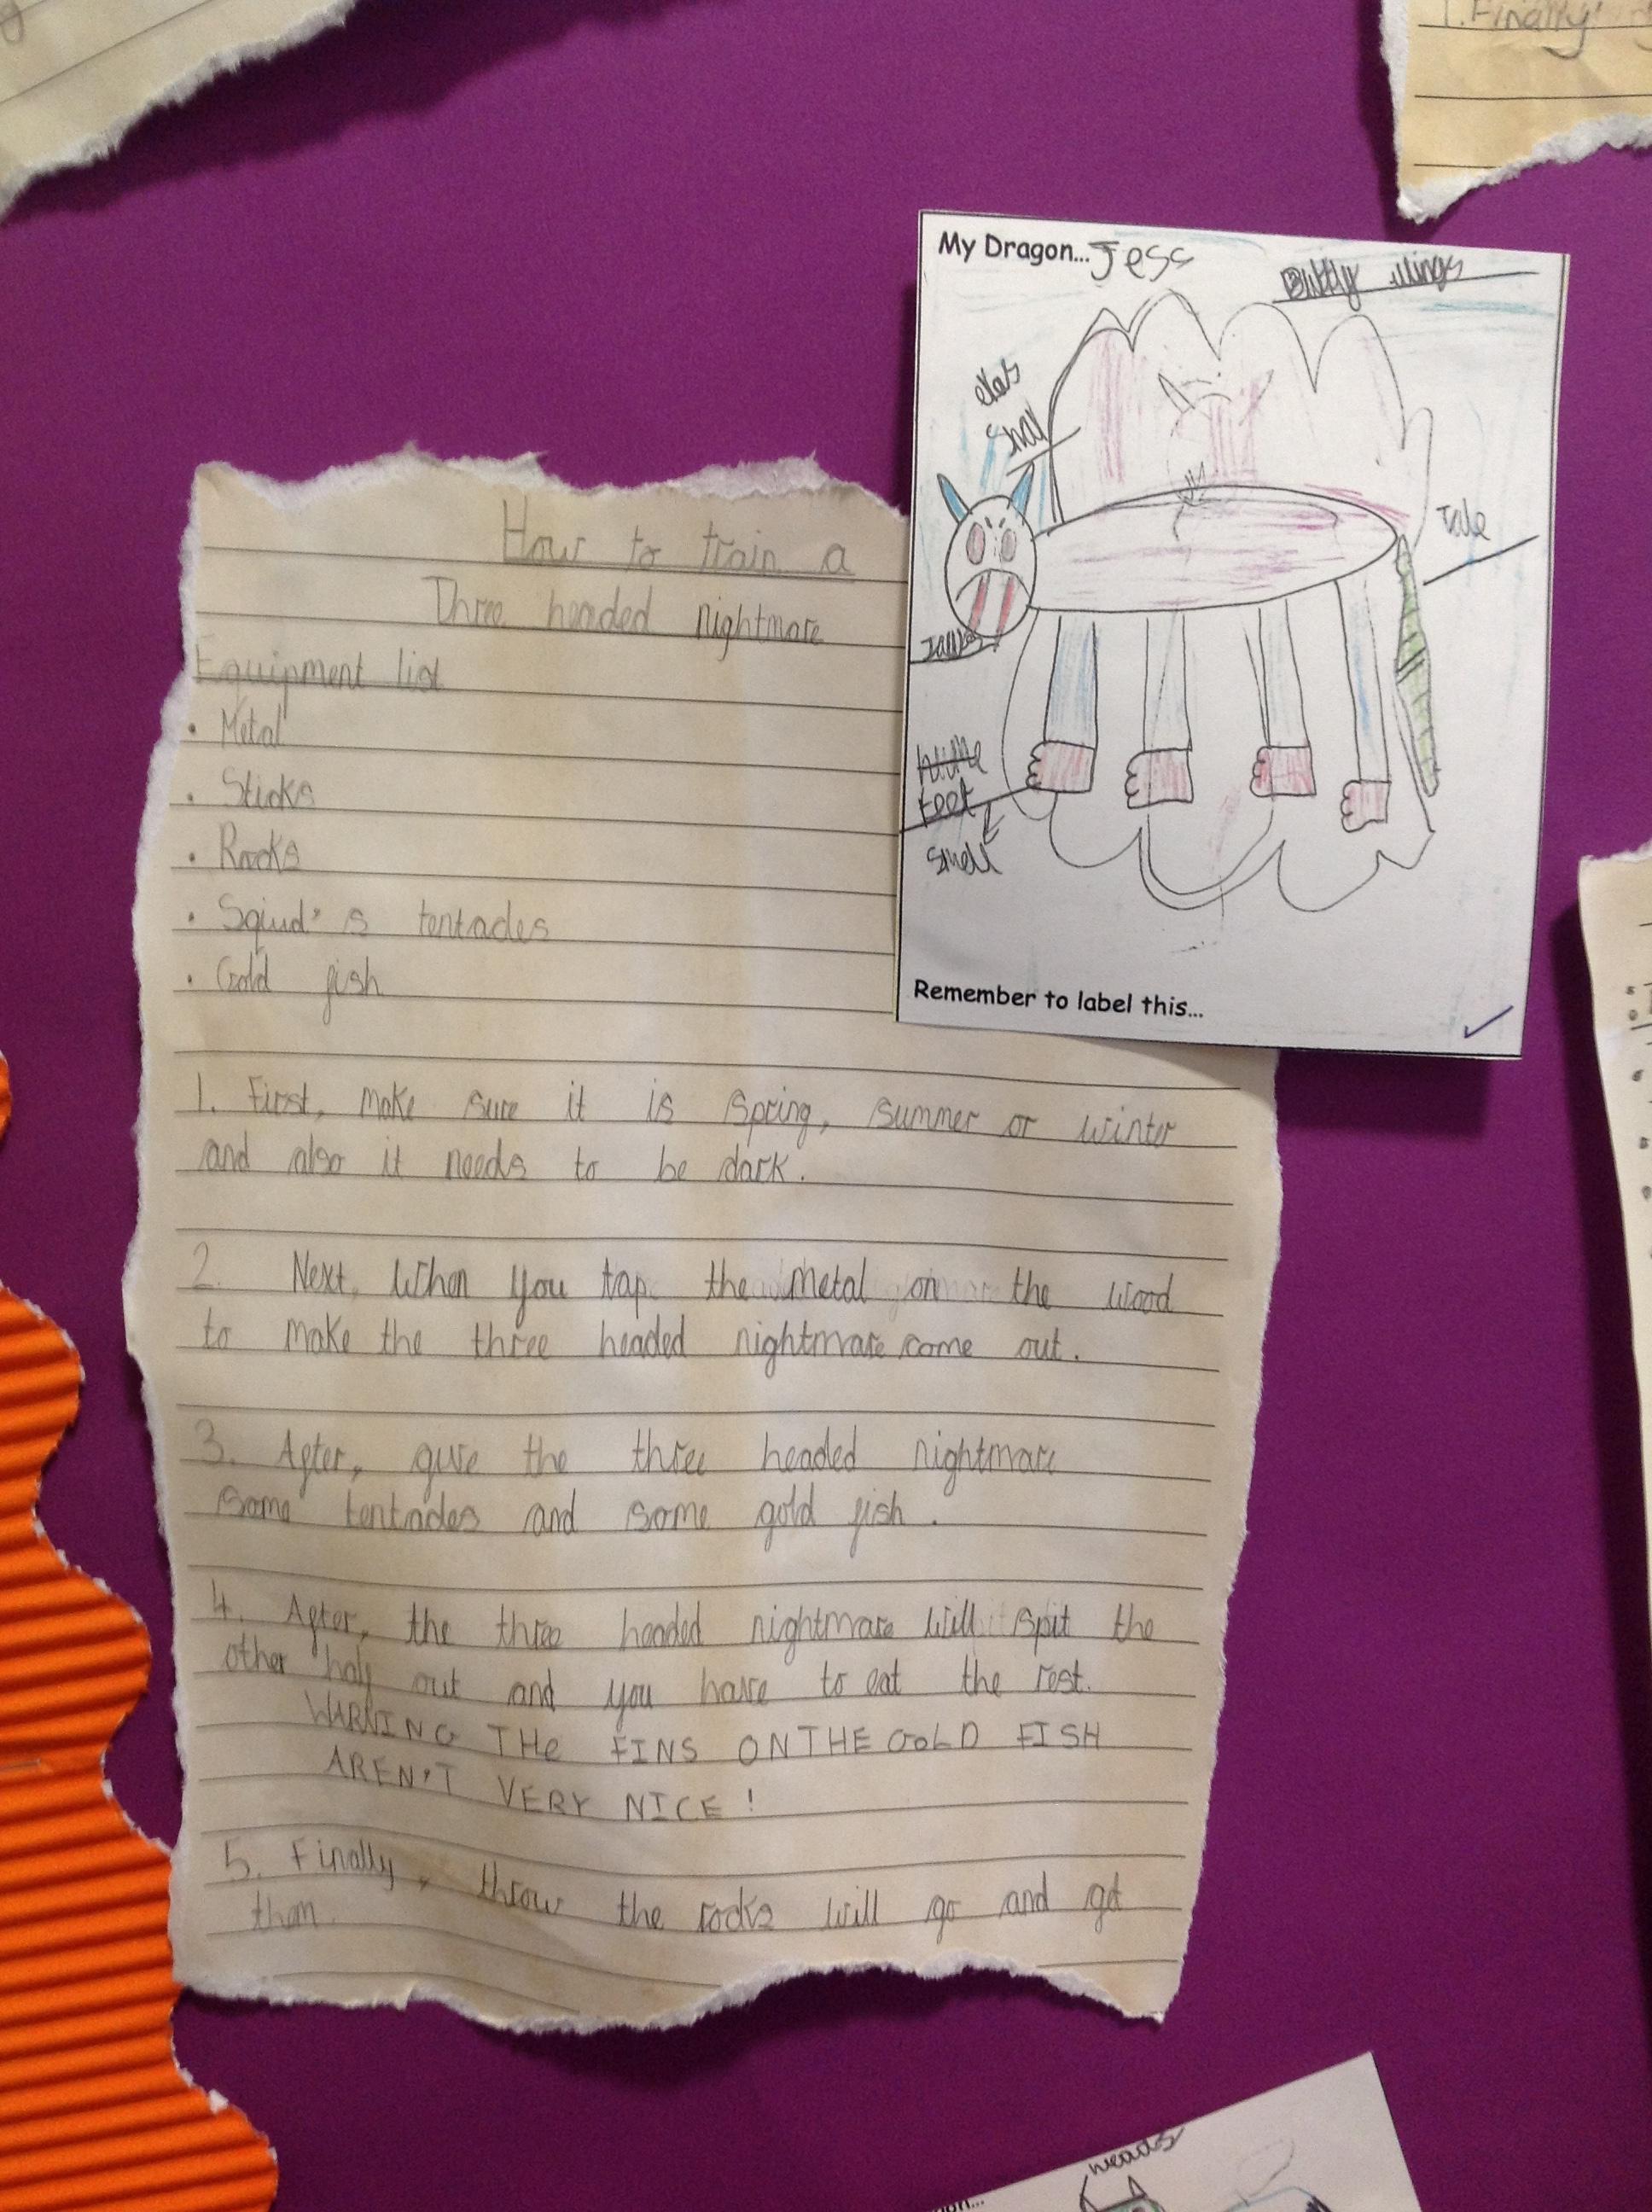 1. Finally,
My Dragon... Jess
wings
Tale
feet
smell
Remember to label this...
How to train a
Three headed nightmare
Equipment list
• Metal
• Sticks
• Rocks
• Sqiud's tentacles
• Gold fish
1. First, make sure it is spring, summer or winter
and also it needs to be dark.
2. Next, when you tap the metal on the wood
to make the three headed nightmare come out.
3. After, give the three headed nightmare
some tentacles and some gold fish.
4. After, the three headed nightmare will spit the
other half out and you have to eat the rest.
WARNING THe FINS ON THE GOLD FISH
AREN'T VERY NICE!
5. Finally, throw the rocks will go and get
them.
heads